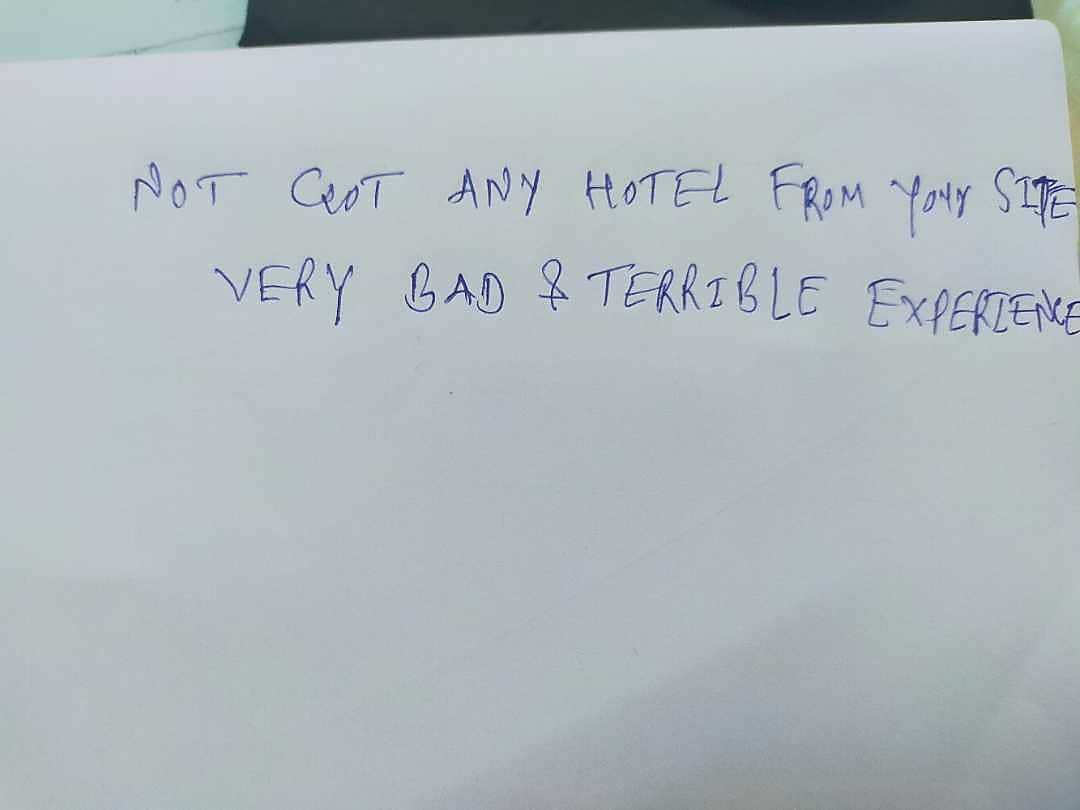 NOT GOT ANY HOTEL FROM YOUR SITE
VERY BAD & TERRIBLE EXPERIENCE